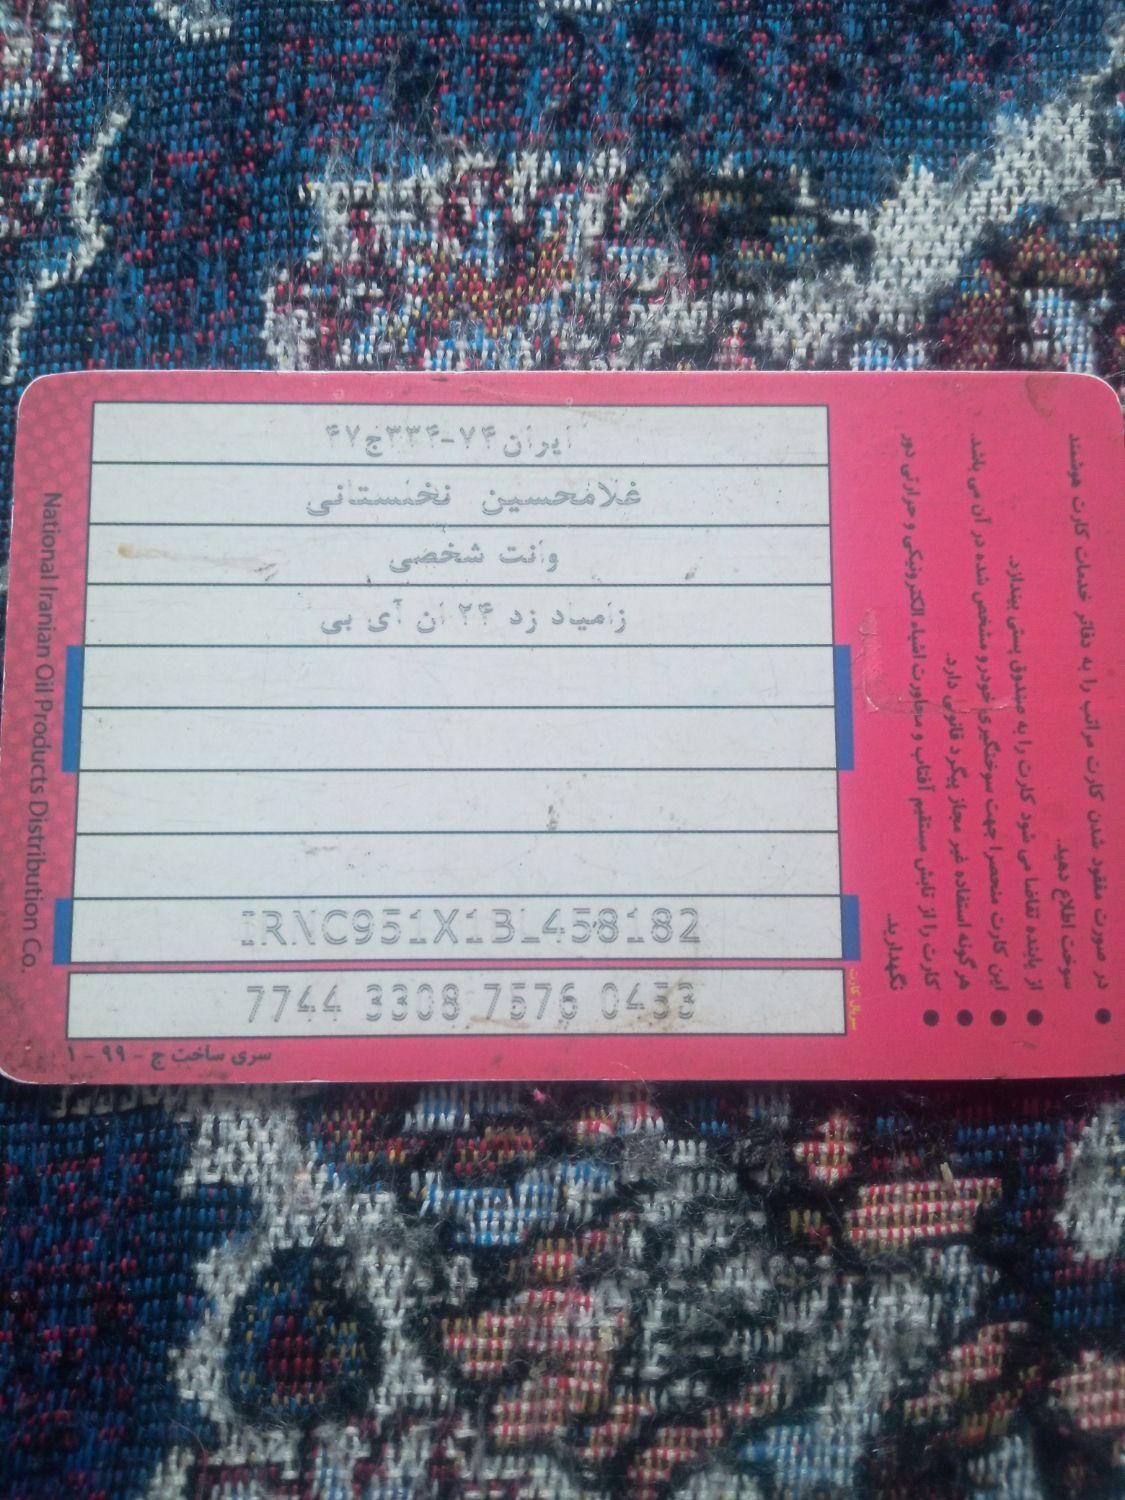 ایران ۷۴-۳۳۴ج۴۷
غلامحسین نخلستانی
وانت شخصی
زامیاد زد ۲۴ ان آی بی
IRNC951X1BL458182
7744 3308 7576 0453
سریال کارت
سری ساخت ج - ۹۹ - ۱
در صورت مفقود شدن کارت مراتب را به دفاتر خدمات کارت هوشمند
سوخت اطلاع دهید.
از یابنده تقاضا می شود کارت را به صندوق پستی بیندازد.
این کارت منحصرا جهت سوختگیری خودرو مشخص شده در آن می باشد.
هر گونه استفاده غیر مجاز پیگرد قانونی دارد.
کارت را از تابش مستقیم آفتاب و مجاورت اشیاء الکترونیکی و حرارتی دور
نگهدارید.
National Iranian Oil Products Distribution Co.